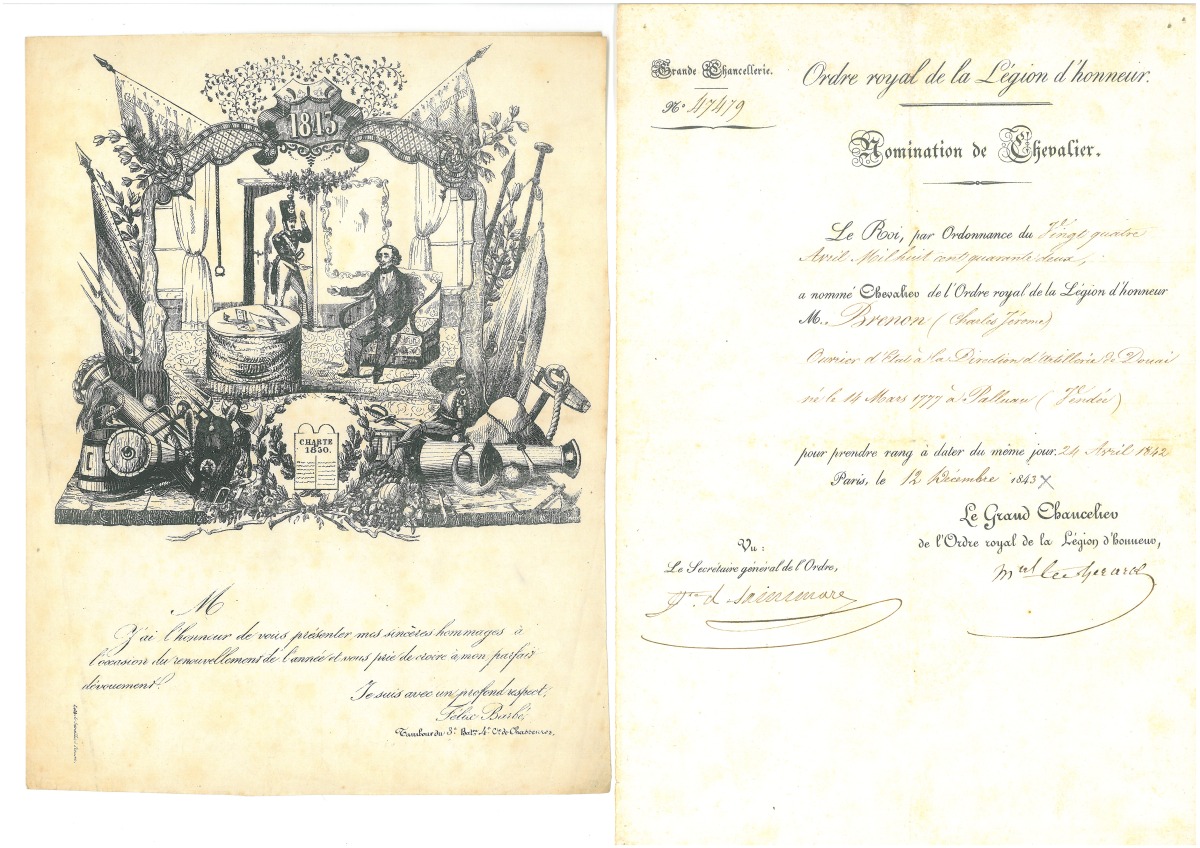 1843
CHARTE
1830.
M
J'ai l'honneur de vous présenter mes sincères hommages à
l'occasion du renouvellement de l'année et vous prie de croire à mon parfait
dévouement.
Je suis avec un profond respect,
Félix Barbé,
Tambour du 3e Batn 4e Cie de Chasseurs.
Grande Chancellerie.
No 47479
Ordre royal de la Légion d'honneur.
Nomination de Chevalier.
Le Roi, par Ordonnance du Vingt quatre
Avril Mil huit cent quarante deux,
a nommé Chevalier de l'Ordre royal de la Légion d'honneur
M. Brenon (Charles Jérome)
Ouvrier d'Etat à la Direction d'artillerie de Douai
né le 14 Mars 1777 à Palluau (Vendée)
pour prendre rang à dater du même jour. 24 Avril 1842
Paris, le 12 Décembre 1843 X
Le Grand Chancelier
de l'Ordre royal de la Légion d'honneur,
Mal Cte Gerard
Vu :
Le Secrétaire général de l'Ordre,